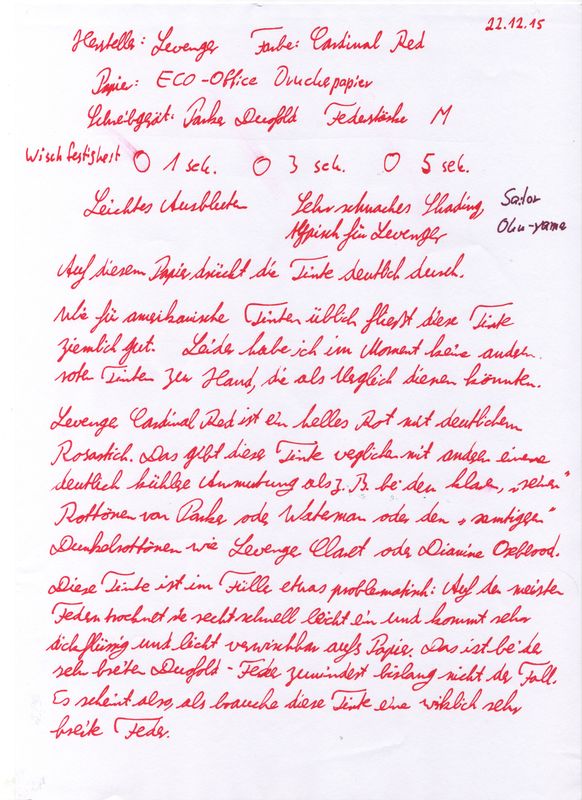 22.12.15
Hersteller: Levenger Farbe: Cardinal Red
Papier: ECO-Office Druckerpapier
Schreibgerät: Parker Duofold Federstärke M
Wischfestigkeit 1 sek. 3 sek. 5 sek.
Leichtes Ausbluten Sehr schwaches Shading, Sailor
Atypisch für Levenger Oku-yama
Auf diesem Papier drückt die Tinte deutlich durch.
Wie für amerikanische Tinten üblich fließt diese Tinte
ziemlich gut. Leider habe ich im Moment keine anderen
roten Tinten zur Hand, die als Vergleich dienen könnten.
Levenger Cardinal Red ist ein helles Rot mit deutlichem
Rosastich. Das gibt dieser Tinte verglichen mit anderen eine
deutlich kühlere Anmutung als z. B. bei den klaren, „reinen"
Rottönen von Parker oder Waterman oder den „samtigen"
Dunkelrottönen wie Levenger Claret oder Diamine Oxblood.
Diese Tinte ist im Füller etwas problematisch: Auf den meisten
Federn trocknet sie recht schnell leicht ein und kommt sehr
dickflüssig und leicht verwischbar aufs Papier. Das ist bei der
sehr breiten Duofold-Feder zumindest bislang nicht der Fall.
Es scheint also, als brauche diese Tinte eine wirklich sehr
breite Feder.